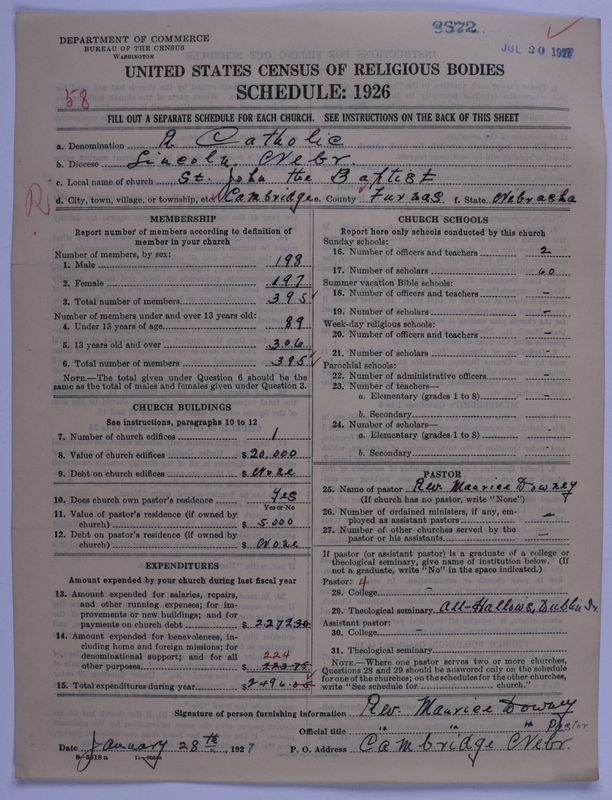 DEPARTMENT OF COMMERCE
BUREAU OF THE CENSUS
WASHINGTON
8672
JUL 20 1927
UNITED STATES CENSUS OF RELIGIOUS BODIES
SCHEDULE: 1926
58
FILL OUT A SEPARATE SCHEDULE FOR EACH CHURCH. SEE INSTRUCTIONS ON THE BACK OF THIS SHEET
a. Denomination R Catholic
b. Diocese Lincoln, Nebr.
c. Local name of church St. John the Baptist
d. City, town, village, or township, etc. Cambridge e. County Furnas f. State Nebraska
R
MEMBERSHIP
Report number of members according to definition of
member in your church
Number of members, by sex:
1. Male 198
2. Female 197
3. Total number of members 395
Number of members under and over 13 years old:
4. Under 13 years of age 89
5. 13 years old and over 306
6. Total number of members 395
NOTE.—The total given under Question 6 should be the
same as the total of males and females given under Question 3.
CHURCH BUILDINGS
See instructions, paragraphs 10 to 12
7. Number of church edifices 1
8. Value of church edifices $ 20,000
9. Debt on church edifices $ None
10. Does church own pastor's residence Yes
Yes or No
11. Value of pastor's residence (if owned by
church) $ 5.000
12. Debt on pastor's residence (if owned by
church) $ None
EXPENDITURES
Amount expended by your church during last fiscal year
13. Amount expended for salaries, repairs,
and other running expenses; for im-
provements or new buildings; and for
payments on church debt $ 2272 30
14. Amount expended for benevolences, in-
cluding home and foreign missions; for
denominational support; and for all 224
other purposes $ 223.75
15. Total expenditures during year $ 2496.05
CHURCH SCHOOLS
Report here only schools conducted by this church
Sunday schools:
16. Number of officers and teachers 2
17. Number of scholars 60
Summer vacation Bible schools:
18. Number of officers and teachers –
19. Number of scholars –
Week-day religious schools:
20. Number of officers and teachers –
21. Number of scholars –
Parochial schools:
22. Number of administrative officers –
23. Number of teachers—
a. Elementary (grades 1 to 8) –
b. Secondary –
24. Number of scholars—
a. Elementary (grades 1 to 8) –
b. Secondary –
PASTOR
25. Name of pastor Rev. Maurice Downey
(If church has no pastor, write "None")
26. Number of ordained ministers, if any, em-
ployed as assistant pastors –
27. Number of other churches served by the
pastor or his assistants –
If pastor (or assistant pastor) is a graduate of a college or
theological seminary, give name of institution below. (If
not a graduate, write "No" in the space indicated.)
Pastor: 4
28. College –
29. Theological seminary All-Hallows, Dublin Ir.
Assistant pastor:
30. College –
31. Theological seminary
NOTE.—Where one pastor serves two or more churches,
Questions 28 and 29 should be answered only on the schedule
for one of the churches; on the schedules for the other churches,
write "See schedule for church."
Signature of person furnishing information Rev. Maurice Downey
Official title " " " Pastor
Date January 28th, 1927 P. O. Address Cambridge Nebr.